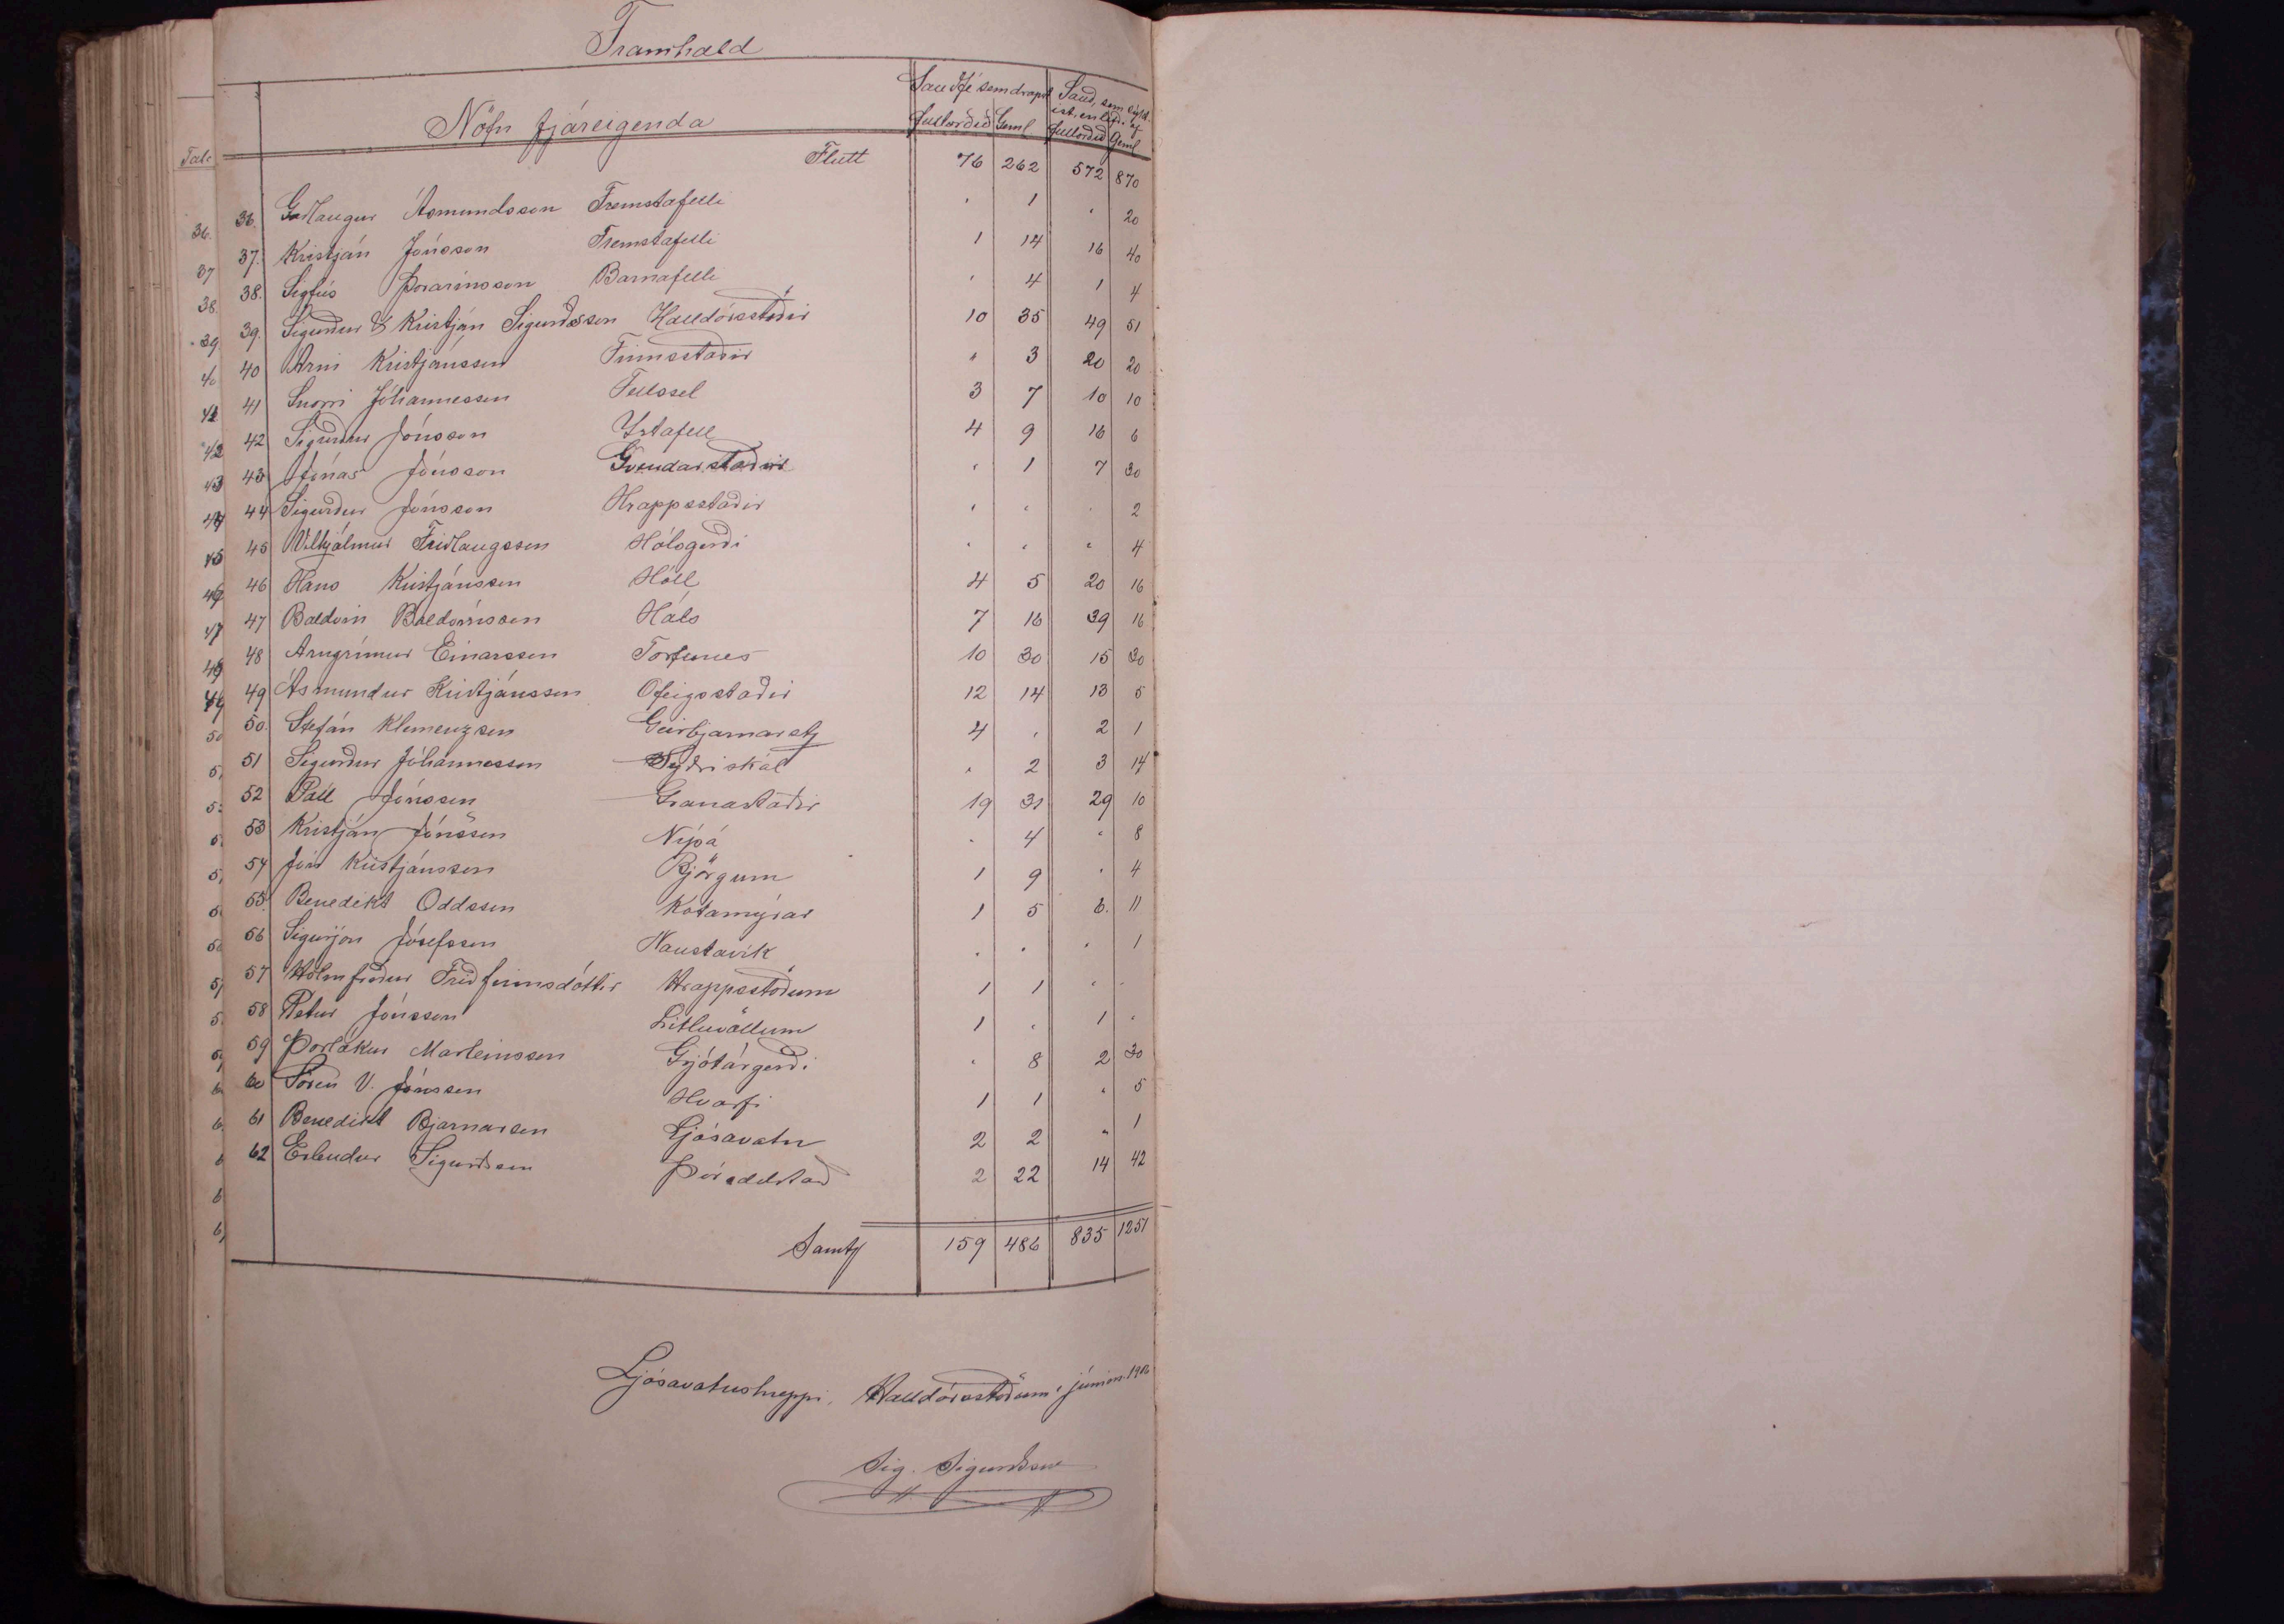 Framhald
Nöfn fjáreigenda
Sauðfé sem drapst
Sauð, sem
fullorðið Geml fullorðið Geml
Tala
Flutt 76 262 572 870
36. Guðlaugur Ásmundsson Fremstafelli " 1 " 20
37. Kristján Jónsson Fremstafelli 1 14 16 40
38. Sigfús Þorarinsson Barnafelli " 4 1 4
39. Sigurður & Kristján Sigurðsson Halldórsstaðir 10 35 49 51
40 Árni Kristjánsson Finnsstaðir " 3 20 20
41 Snorri Jóhannesson Fellssel 3 7 10 10
42 Sigurður Jónsson Ystafell 4 9 16 6
43 Jónas Jónsson Gvendarstaðir " 1 7 30
44 Sigurður Jónsson Hrappsstaðir " " " 2
45 Vilhjálmur Friðlaugsson Hólsgerði " " " 4
46 Hans Kristjánsson Hóll 4 5 20 16
47 Baldvin Baldvinsson Háls 7 16 39 16
48 Arngrímur Einarsson Torfunes 10 30 15 30
49 Ásmundur Kristjánsson Ofeigsstaðir 12 14 13 5
50. Stefán Klemenzson Geirbjarnarstj 4 " 2 1
51 Sigurður Jóhannesson Syðriskál " 2 3 14
52 Páll Jónsson Granastaðir 19 31 29 10
53 Kristján Jónsson Nípá " 4 " 8
54 Jón Kristjánsson Björgum 1 9 " 4
55. Benedikt Oddsson Kotamýrar 1 5 6. 11
56 Sigurjón Jósefsson Naustavík " " " 1
57 Hólmfríður Friðfinnsdóttir Hrappsstöðum 1 1 " "
58 Petur Jónsson Litluvöllum 1 " 1 "
59 Þorlákur Marteinsson Grjótárgerði " 8 2 30
60 Sören V. Jónsson Hvarfi 1 1 " 5
61 Benedikt Bjarnarson Ljósavatn 2 2 " 1
62 Erlendur Sigurðsson Þóroddstað 2 22 14 42
Samtj 159 486 835 1251
Ljósavatnshreppi, Halldórsstöðum í júnim. 1906
Sig. Sigurðsson